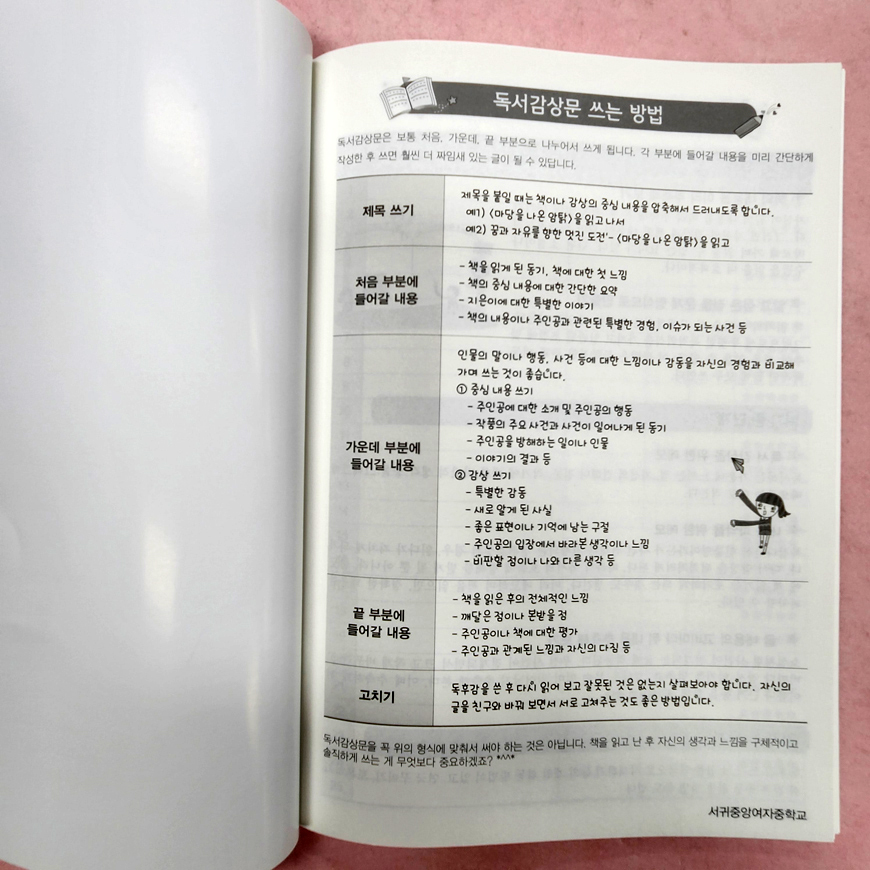 독서감상문 쓰는 방법
독서감상문은 보통 처음, 가운데, 끝 부분으로 나누어서 쓰게 됩니다. 각 부분에 들어갈 내용을 미리 간단하게
작성한 후 쓰면 훨씬 더 짜임새 있는 글이 될 수 있답니다.
제목 쓰기
제목을 붙일 때는 책이나 감상의 중심 내용을 압축해서 드러내도록 합니다.
예1) <마당을 나온 암탉>을 읽고 나서
예2) 꿈과 자유를 향한 멋진 도전'- <마당을 나온 암탉>을 읽고
처음 부분에
들어갈 내용
- 책을 읽게 된 동기, 책에 대한 첫 느낌
- 책의 중심 내용에 대한 간단한 요약
- 지은이에 대한 특별한 이야기
- 책의 내용이나 주인공과 관련된 특별한 경험, 이슈가 되는 사건 등
가운데 부분에
들어갈 내용
인물의 말이나 행동, 사건 등에 대한 느낌이나 감동을 자신의 경험과 비교해
가며 쓰는 것이 좋습니다.
① 중심 내용 쓰기
- 주인공에 대한 소개 및 주인공의 행동
- 작품의 주요 사건과 사건이 일어나게 된 동기
- 주인공을 방해하는 일이나 인물
- 이야기의 결과 등
② 감상 쓰기
- 특별한 감동
- 새로 알게 된 사실
- 좋은 표현이나 기억에 남는 구절
- 주인공의 입장에서 바라본 생각이나 느낌
- 비판할 점이나 나와 다른 생각 등
끝 부분에
들어갈 내용
- 책을 읽은 후의 전체적인 느낌
- 깨달은 점이나 본받을 점
- 주인공이나 책에 대한 평가
- 주인공과 관계된 느낌과 자신의 다짐 등
고치기
독후감을 쓴 후 다시 읽어 보고 잘못된 것은 없는지 살펴보아야 합니다. 자신의
글을 친구와 바꿔 보면서 서로 고쳐주는 것도 좋은 방법입니다.
독서감상문을 꼭 위의 형식에 맞춰서 써야 하는 것은 아닙니다. 책을 읽고 난 후 자신의 생각과 느낌을 구체적이고
솔직하게 쓰는 게 무엇보다 중요하겠죠? *^^*
서귀중앙여자중학교